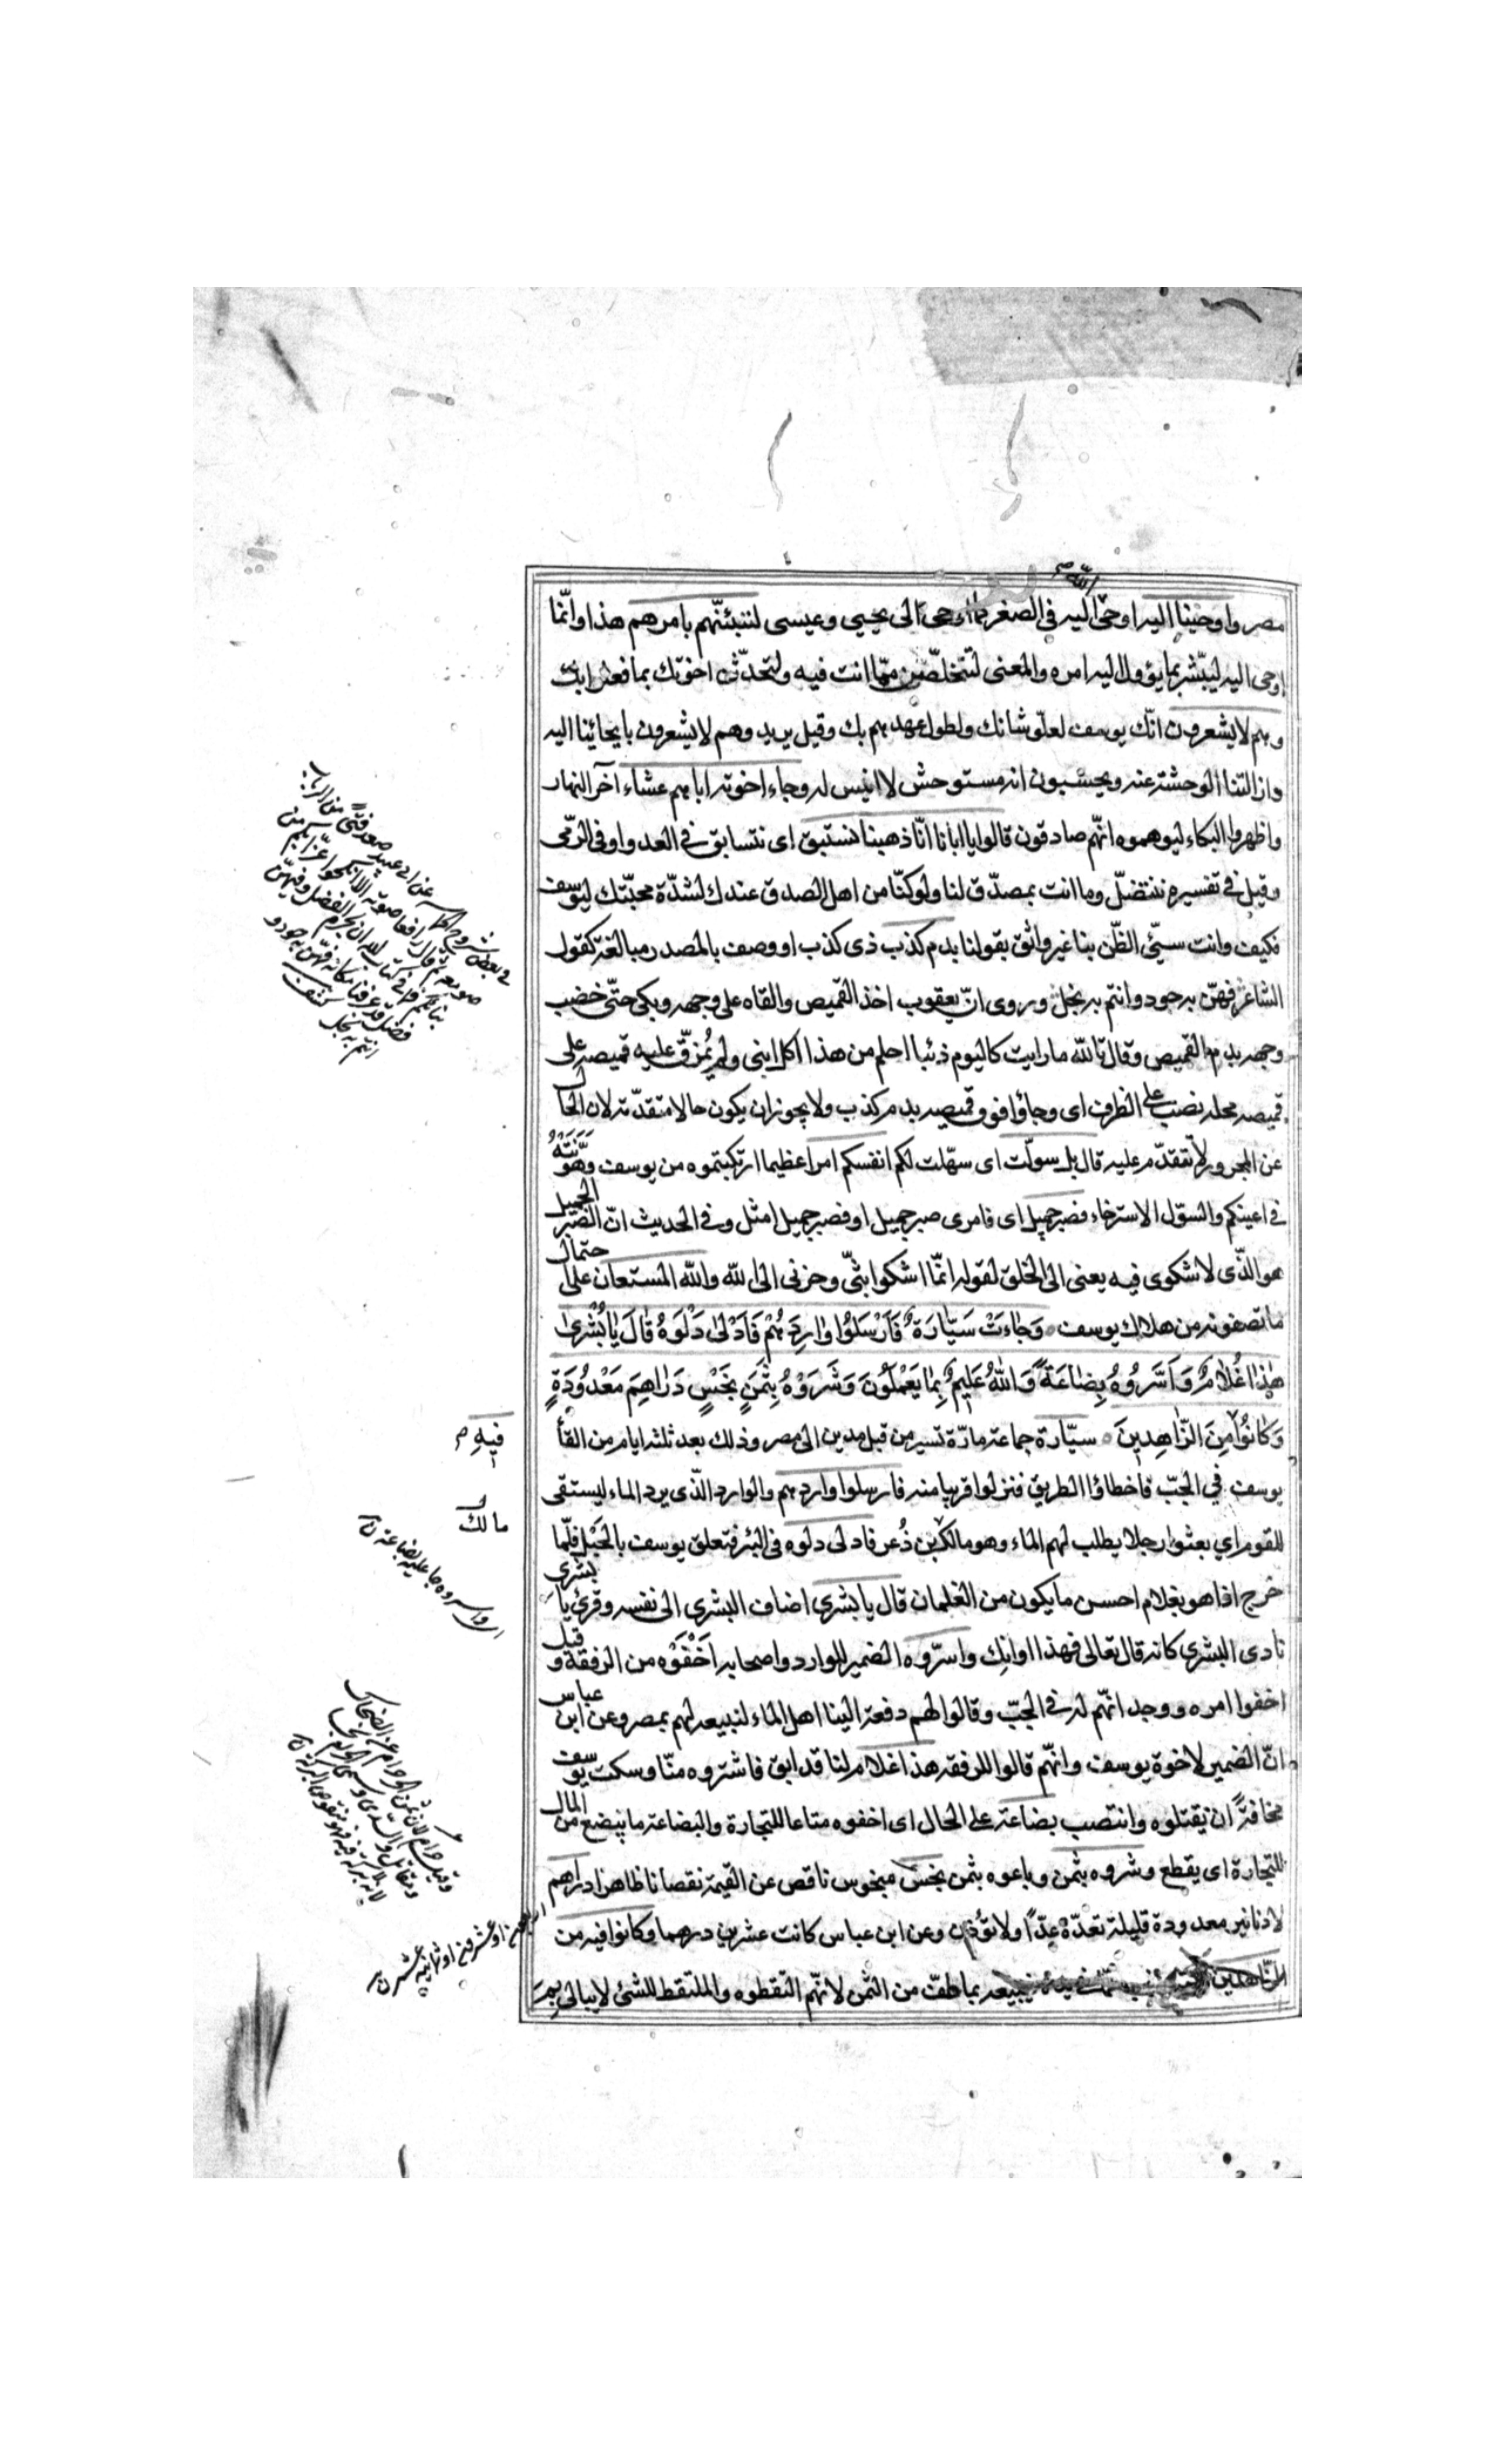 الله
مصر واوحينا اليه اوحى اليه في الصغر كما اوحى الى يحيى وعيسى لتنبئنّهم بامرهم هذا وانّما
اوحى اليه ليبشّر بما يؤول اليه امره والمعنى لتتخلّصنّ ممّا انت فيه ولتحدّثنّ اخوتك بما فعلوا بك
وهم لا يشعرون انّك يوسف لعلوّ شانك ولطول عهدهم بك وقيل يريد وهم لا يشعرون بايحائينا اليه
وازالتنا الوحشة عنه ويحسبون انه مستوحش لا انيس له وجاء اخوته اباهم عشاء آخر النهار
واظهروا البكاء ليوهموه انّهم صادقون قالوا يا ابانا انّا ذهبنا نستبق اى نتسابق في العدو او في الرّمى
وقيل في تفسيره ننتضل وما انت بمصدّق لنا ولو كنّا من اهل الصدق عندك لشدّة محبّتك ليوسف
فكيف وانت سيّئ الظّن بنا غير واثق بقولنا بدم كذب ذى كذب او وصف بالمصدر مبالغة كقول
الشاعر فهنّ به جود وانتم به بخل وروى انّ يعقوب اخذ القميص والقاه على وجهه وبكى حتّى خضب
وجهه بدم القميص وقال تالله ما رايت كاليوم ذئبا احلم من هذا اكل ابنى ولم يُمزّق عليه قميصه على
قميصه محله نصب على الظرف اى وجاؤا فوق قميصه بدم كذب ولا يجوز ان يكون حالا متقدّمة لان الحال
عن المجرور لا تتقدّم عليه قال بل سولت اى سهّلت لكم انفسكم امرا عظيما ارتكبتموه من يوسف وهوّنته
في اعينكم والسوّل الاسترخاء فصبر جميل اى فامرى صبر جميل او فصبر جميل امثل وفي الحديث انّ الصبر الجميل
هو الّذى لا شكوى فيه يعنى الى الخلق لقوله انّما اشكوا بثّى وحزنى الى الله والله المستعان على احتمال
ما تصفونه من هلاك يوسف وَجَاءَتْ سَيَّارَةٌ فَاَرْسَلُوا وَارِدَهُمْ فَاَدْلٰى دَلْوَهُ قَالَ يَا بُشْرٰى
هٰذَا غُلَامٌ وَاَسَرُّوهُ بِضَاعَةً وَاللّٰهُ عَلِيمٌ بِمَا يَعْمَلُونَ وَشَرَوْهُ بِثَمَنٍ بَخْسٍ دَرَاهِمَ مَعْدُودَةٍ
وَكَانُوا مِنَ الزَّاهِدِينَ سيّارة جماعة مارّة تسير من قبل مدين الى مصر وذلك بعد ثلثة ايام من القاء
يوسف في الجبّ فاخطاؤا الطريق فنزلوا قريبا منه فارسلوا واردهم والوارد الّذى يرد الماء ليستقى
للقوم اي بعثوا رجلا يطلب لهم الماء وهو مالك بن ذُعر فادلى دلوه في البئر فتعلق يوسف بالحَبْل فلّما
خرج اذا هو بغلام احسن ما يكون من الغلمان قال يا بشرى اضاف البشرى الى نفسه وقرئ يا بشرى
نادى البشرى كانه قال تعالى فهذا اوانك واسرّوه الضمير للوارد واصحابه اَخْفَوْه من الرفقة وقيل
اخفوا امره ووجدانّهم له في الجبّ وقالوا لهم دفعه الينا اهل الماء لنبيعه لهم بمصر وعن ابن عباس
انّ الضمير لاخوة يوسف وانّهم قالوا للرفقه هذا غلام لنا قد ابق فاشتروه منّا وسكت يوسف
مخافة ان يقتلوه وانتصب بضاعة على الحال اى اخفوه متاعا للتجارة والبضاعة ما يبضع من المال
للتجارة اى يقطع وشروه بثمن وباعوه بثمن بخس مبخوس ناقص عن القيمة نقصانا ظاهرا دراهم
لا دنانير معدودة قليلة تعدّ عدّا ولا توزن وعن ابن عباس كانت عشرين درهما وكانوا فيه من
الزّاهدين فيبيعه بما طفّ من الثمن لانّهم التقطوه والملتقط للشئ لا يبالى بم
فيه
مالك